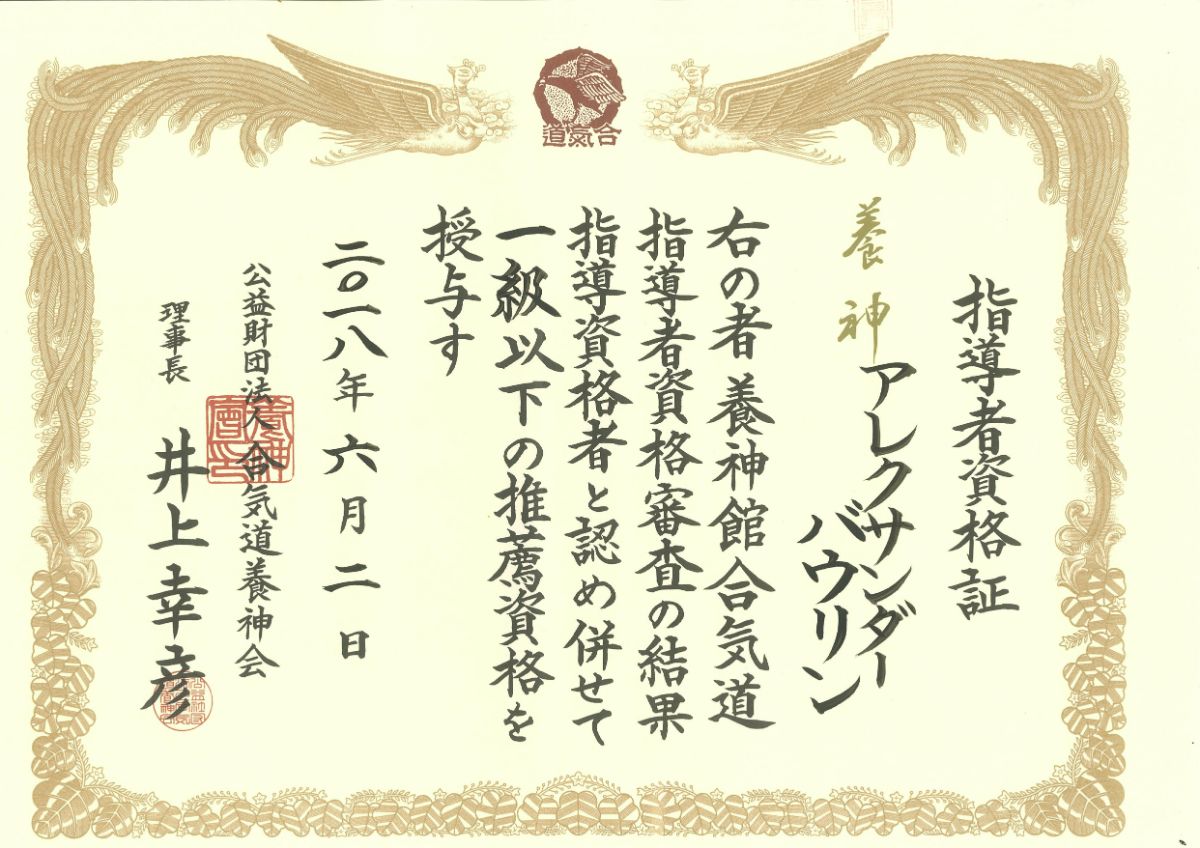 道氣合
指導者資格証
養神
アレクサンダー
バウリン
右の者養神館合気道
指導者資格審査の結果
指導資格者と認め併せて
一級以下の推薦資格を
授与す
二〇一八年六月二日
公益財団法人合気道養神会
理事長 井上幸彦